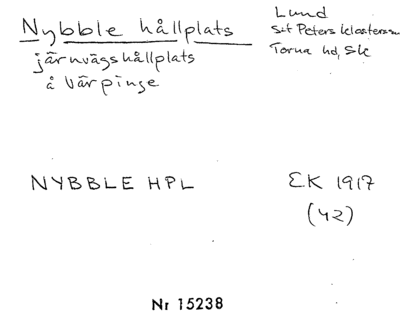 Nybble hållplats
järnvägshållplats
å Värpinge
Lund
S:t Peters klosters sn
Torna hd, Sk
NYBBLE HPL
EK 1917
(42)
Nr 15238